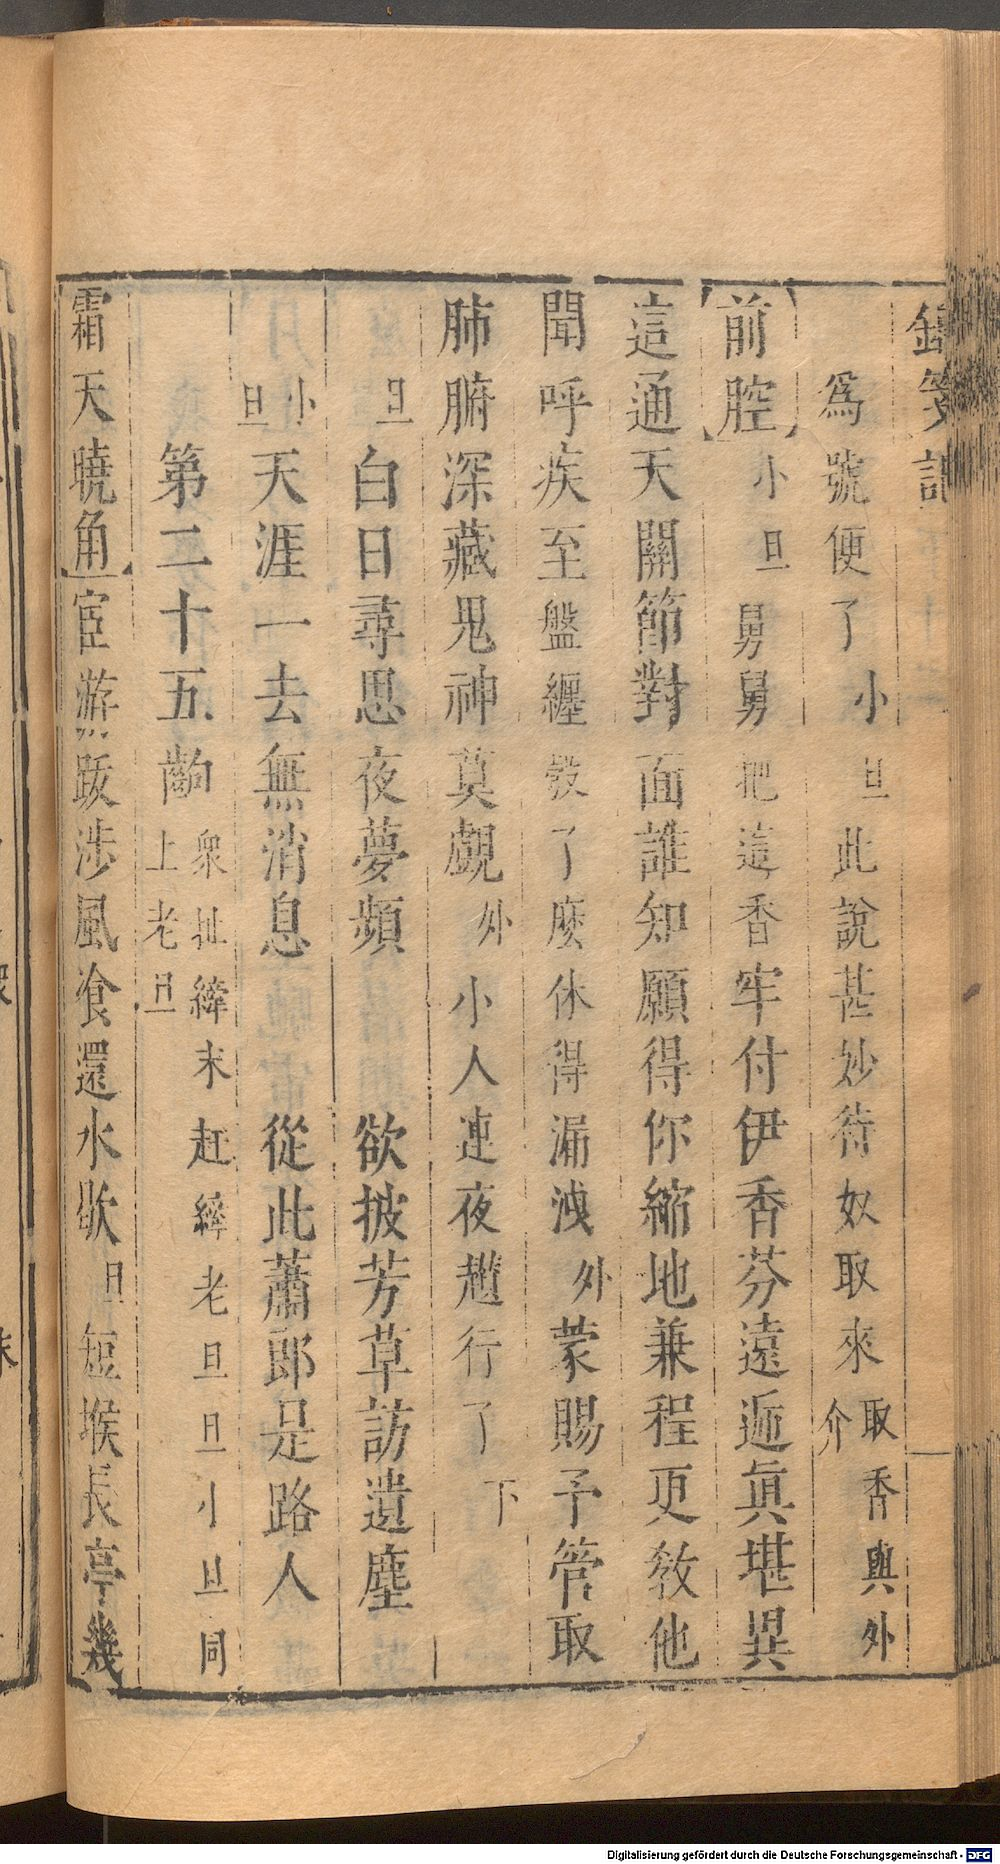 為號便了小旦此說甚妙待奴取來取香與外介
前腔小旦舅舅把這香牢付伊香芬遠遞眞堪異
這通天關節對面誰知願得你縮地兼程更教他
聞呼疾至盤纏教了麽休得漏洩外蒙賜予管取
肺腑深藏鬼神莫覷外小人連夜趲行了下
旦白日尋思夜夢頻 欲披芳草訪遺塵
小旦天涯一去無消息 從此蕭郎是路人
第二十五齣衆扯緯末赶繂老旦旦小旦同上老旦
霜天曉角宦游跋涉風飡還水歇旦短堠長亭幾
Digitalisierung gefördert durch die Deutsche Forschungsgemeinschaft - DFG